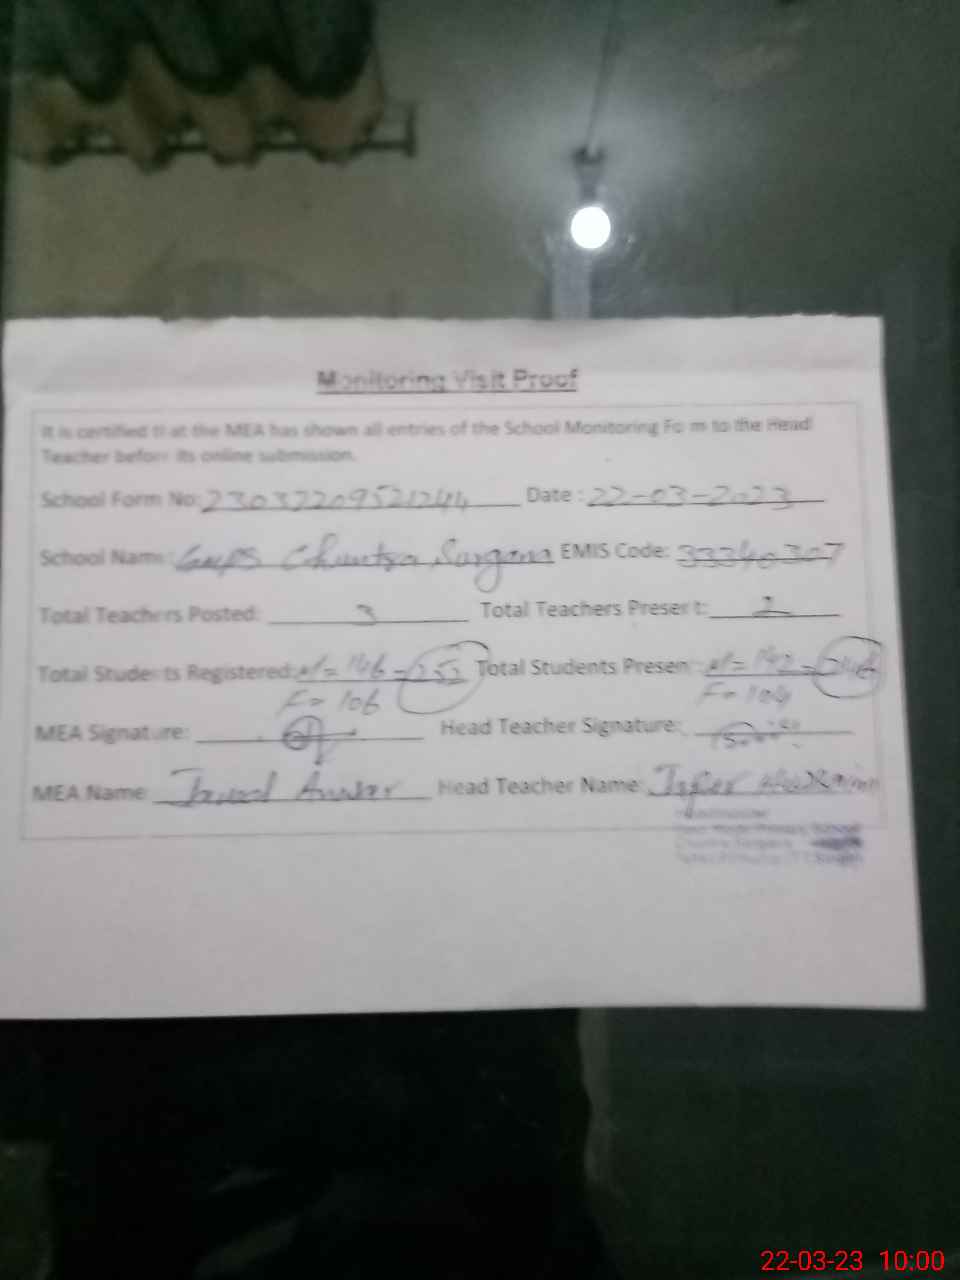 Monitoring Visit Proof
It is certified that the MEA has shown all entries of the School Monitoring Form to the Head
Teacher before its online submission.
School Form No: 230372209521244 Date : 22-03-2023
School Name: GMPS Chuntra Sargana EMIS Code: 33340307
Total Teachers Posted: 3 Total Teachers Present:
Total Students Registered: M= 146 = 252 Total Students Present: M= 142 = 246
F= 106 F= 104
MEA Signature: Head Teacher Signature:
MEA Name Javed Anwar Head Teacher Name:
22-03-23 10:00